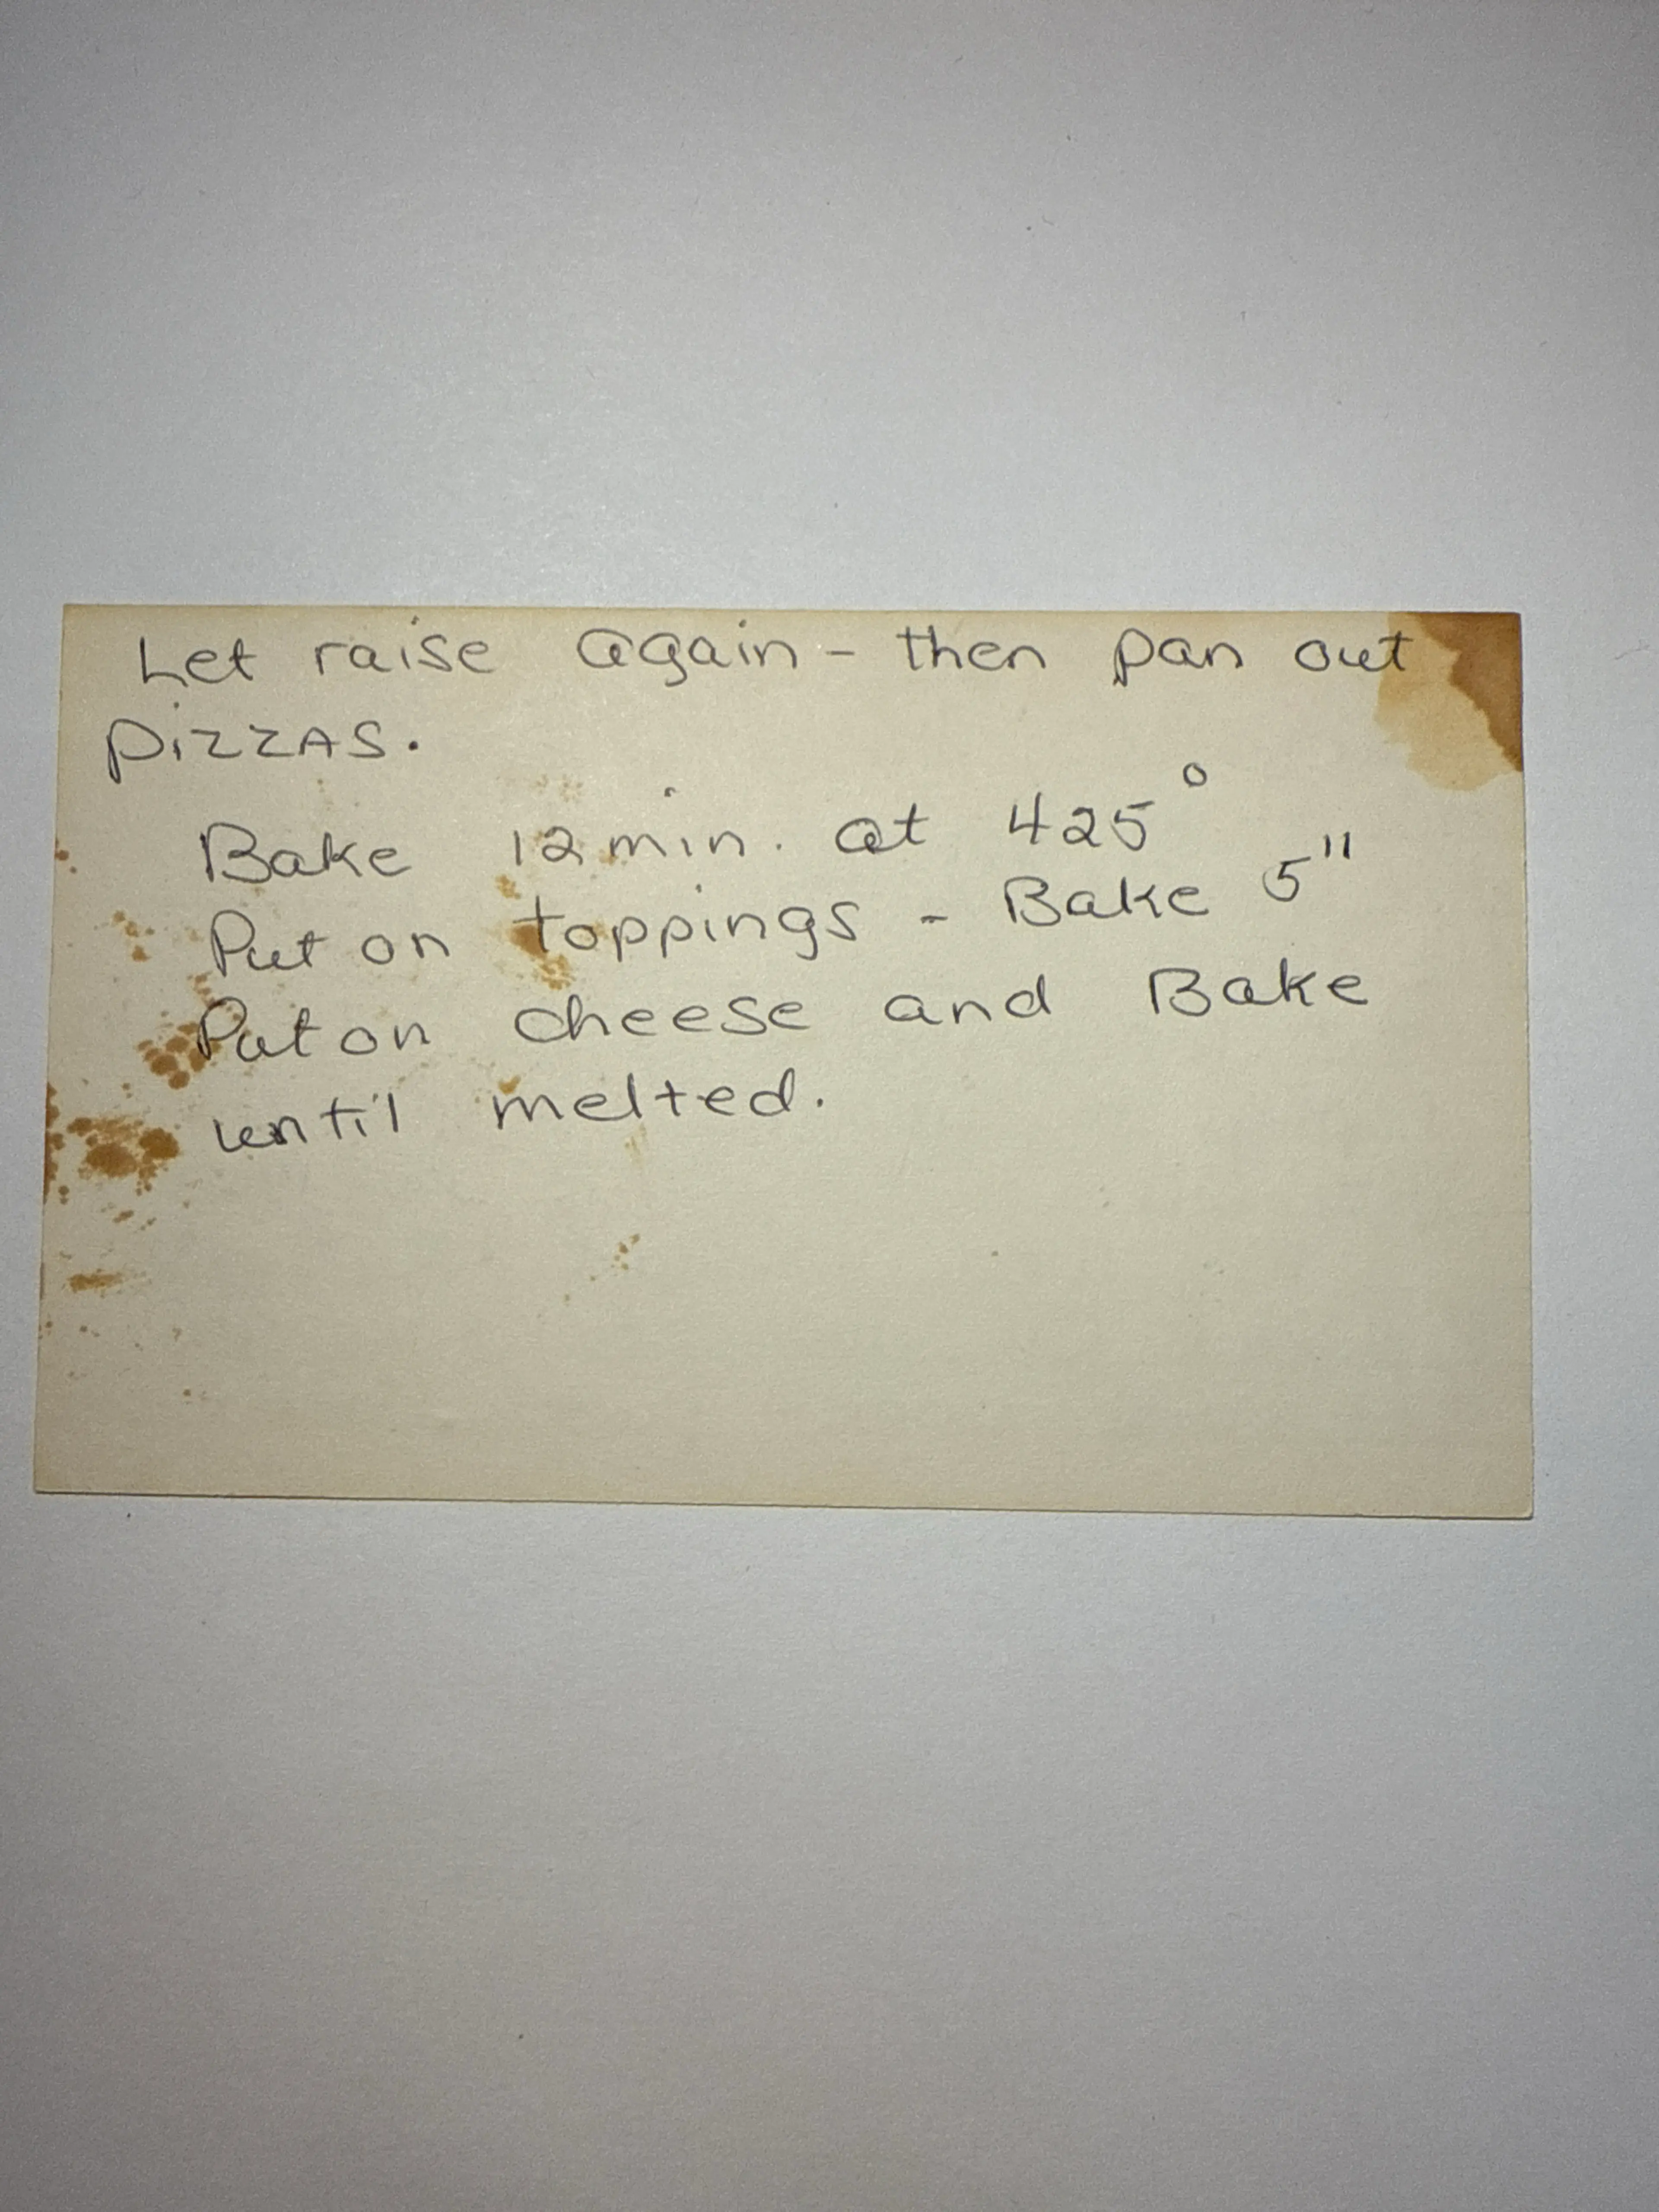 Let raise again - then pan out
pizzas.
Bake 12 min. at 425°
Put on toppings - Bake 5"
Put on cheese and Bake
until melted.